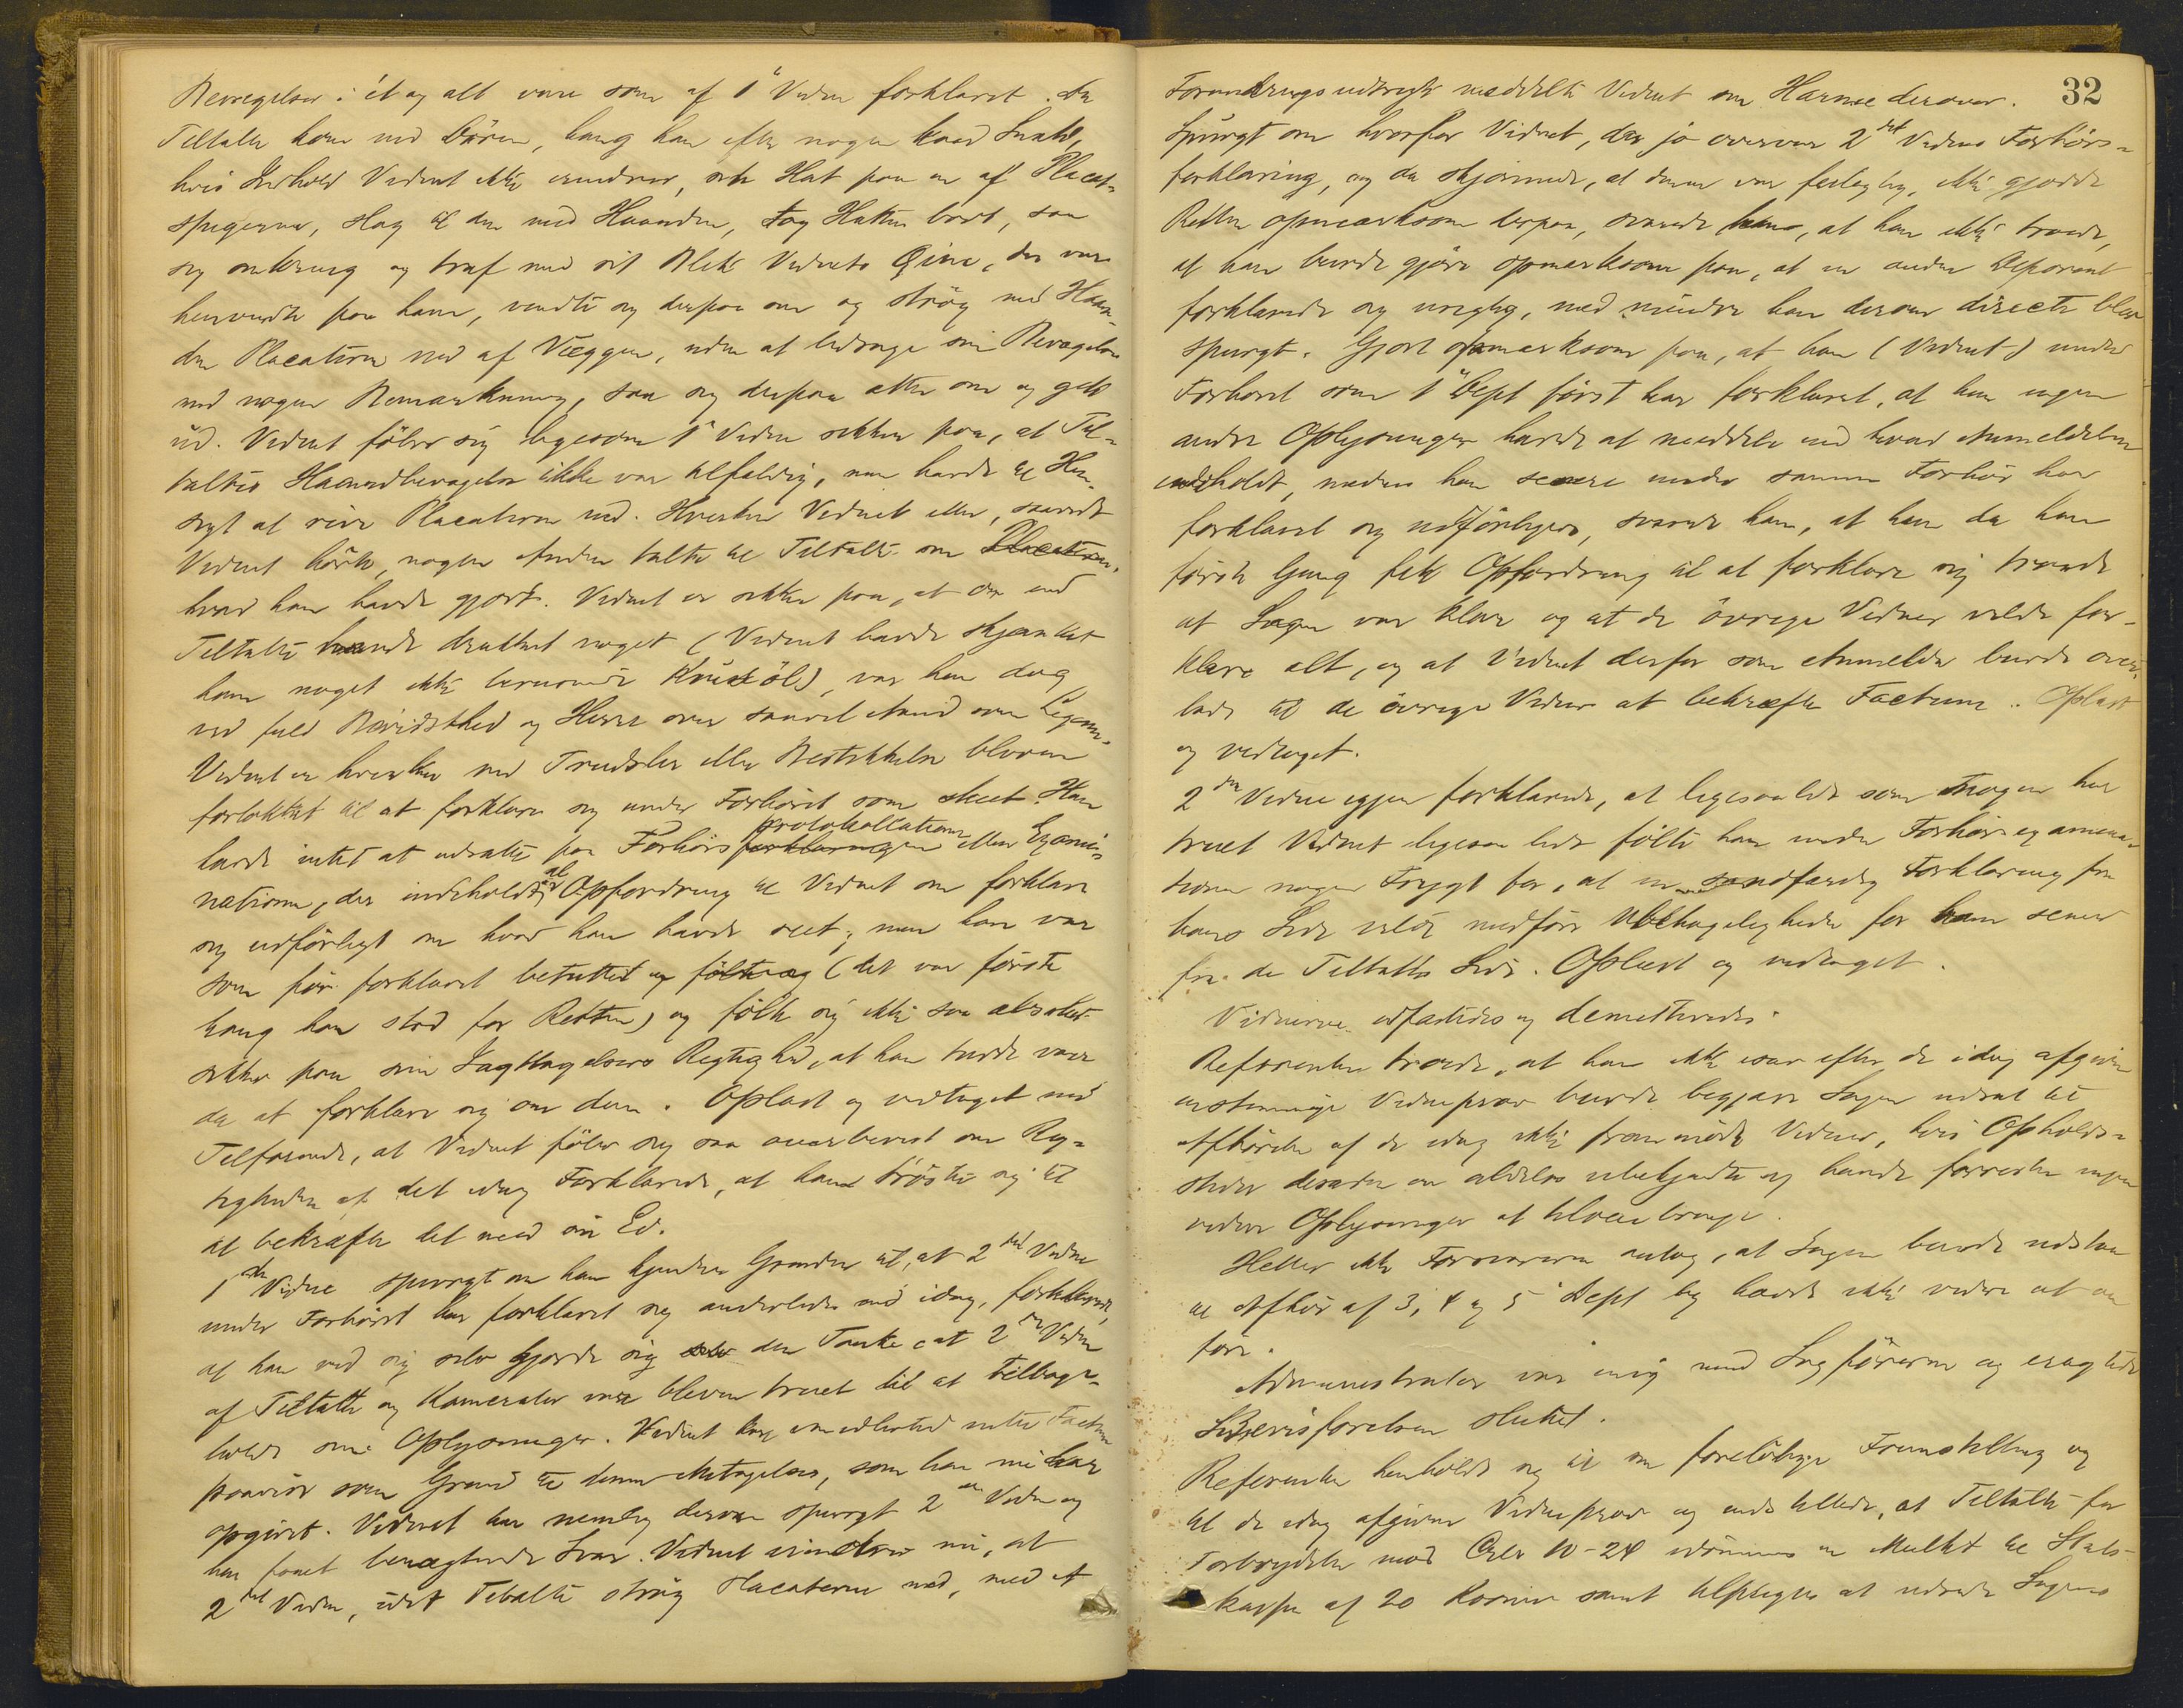 Bevægelser i ét og alt være som af 1ste Vidne forklaret. Da
Tiltalte kom ved Døren, hang han efter nogen Snak,
hvis Indhold Vidnet ikke erindrer, sin Hat paa en af Placat-
spigerne, slog til den med Haanden, tog Hatten bort, saa
sig omkring og traf med sit Blik Vidnets Øine, der vare
henvendte paa ham, vendte sig derpaa om og strøg med Haan-
den Placaterne ned af Væggen, uden at ledsage sin Bevægelse
med nogen Bemærkning, saa sig derpaa atter om og gik
ud. Vidnet føler sig ligesom 1ste Vidne sikker paa, at Til-
taltes Haandbevægelse ikke var tilfældig, men havde til Hen-
sigt at rive Placaterne ned. Hverken Vidnet eller, saavidt
Vidnet hørte, nogen Anden talte til Tiltalte om Placaterne,
hvad han havde gjort. Vidnet er sikker paa, at om end
Tiltalte havde drukket noget (Vidnet havde skjænket
ham noget ikke berusende Krusøl), var han dog
ved fuld Bevidsthed og Herre over saavel Aand som Legem.
Vidnet er hverken ved Trudsler eller Bestikkelse bleven
forlokket til at forklare sig under Forhøret som skeet. Han
havde intet at udsætte paa Forhørsforklaringen protokollationen eller Exami-
nationen, der indeholdt al Opfordring til Vidnet om forklare
sig udførligt om hvad han havde seet; men han var
som før forklaret betuttet og (det var første
Gang han stod for Retten) og følte sig ikke saa absolut
sikker paa sin Iagttagelses Rigtighed, at han turde være
da at forklare sig om dem. Oplæst og vedtaget med
Tilføiende, at Vidnet føler sig saa overbevist om Rig-
tigheden af det idag Forklarede, at han trøster sig til
at bekræfte det med sin Ed.
1ste Vidne spurgt om han kjender Grunden til, at 2det Vidne
under Forhøret har forklaret sig anderledes end idag, forklarede,
at han ved sig selv gjorde sig den Tanke at 2det Vidne
af Tiltalte og Kamerater var bleven truet til at tilbage-
holde sine Oplysninger. Vidnet kan imidlertid intet Factum
paavise som Grund til denne Antagelse, som han nu har
opgivet. Vidnet har nemlig derom spurgt 2det Vidne og
har faaet benægtende Svar. Vidnet erindrer nu, at
2det Vidne, idet Tiltalte strøg Placaterne ned, med et
32
Forundrings udtryk meddelte Vidnet sin Harme derover.
Spurgt om hvorfor Vidnet, der jo overvar 2det Vidnes Forhørs-
forklaring, og da skjønnede, at denne var feilagtig, ikke gjorde
Retten opmærksom derpaa, svarede han, at han ikke troede,
at han burde gjøre opmærksom paa, at en anden Deponent
forklarede sig urigtig, med mindre han derom directe blev
spurgt. Gjort opmærksom paa, at han (Vidnet) under
Forhøret som 1ste Dept først har forklaret, at han ingen
andre Oplysninger havde at meddele end hvad Anmeldelsen
indeholdt, medens han senere under samme Forhør har
forklaret sig udførligere, svarede han, at han da han
første Gang fik Opfordring til at forklare sig troede
at Sagen var klar og at de øvrige Vidner vilde for-
klare alt, og at Vidnet derfor som Anmelder burde over-
lade til de øvrige Vidner at bekræfte Factum. Oplæst
og vedtaget.
2det Vidne igjen forklarede, at ligesaalidt som Nogen har
truet Vidnet ligesaa lidt følte han under Forhørsexamina-
tionen nogen Frygt for, at en sandfærdig Forklaring fra
hans Side vilde medføre Ubehageligheder for ham senere
fra de Tiltaltes Side. Oplæst og vedtaget.
Vidnerne edfæstedes og demitteredes.
Referenten troede, at han ikke især efter de idag afgivne
enstemmige Vidneprov burde begjære Sagen udsat til
Afhørelse af de idag ikke fremmødte Vidner, hvis Opholds-
steder desuden er aldeles ubekjendte og havde forresten ingen
videre Oplysninger at tilveiebringe.
Heller ikke Forsvareren antog, at Sagen burde udstaa
til Afhør af 3, 4 og 5 Dept og havde ikke videre at an-
føre.
Administrator var enig med Sagførerne og eragtede
Bevisførelsen sluttet.
Referenten henholdt sig til sin foreløbige Fremstilling og
til de idag afgivne Vidneprov og indstillede, at Tiltalte for
Forbrydelse mod Crls 10-24 idømmes en Mulkt til Stats-
kassen af 20 Kroner samt tilpligtes at udrede Sagens